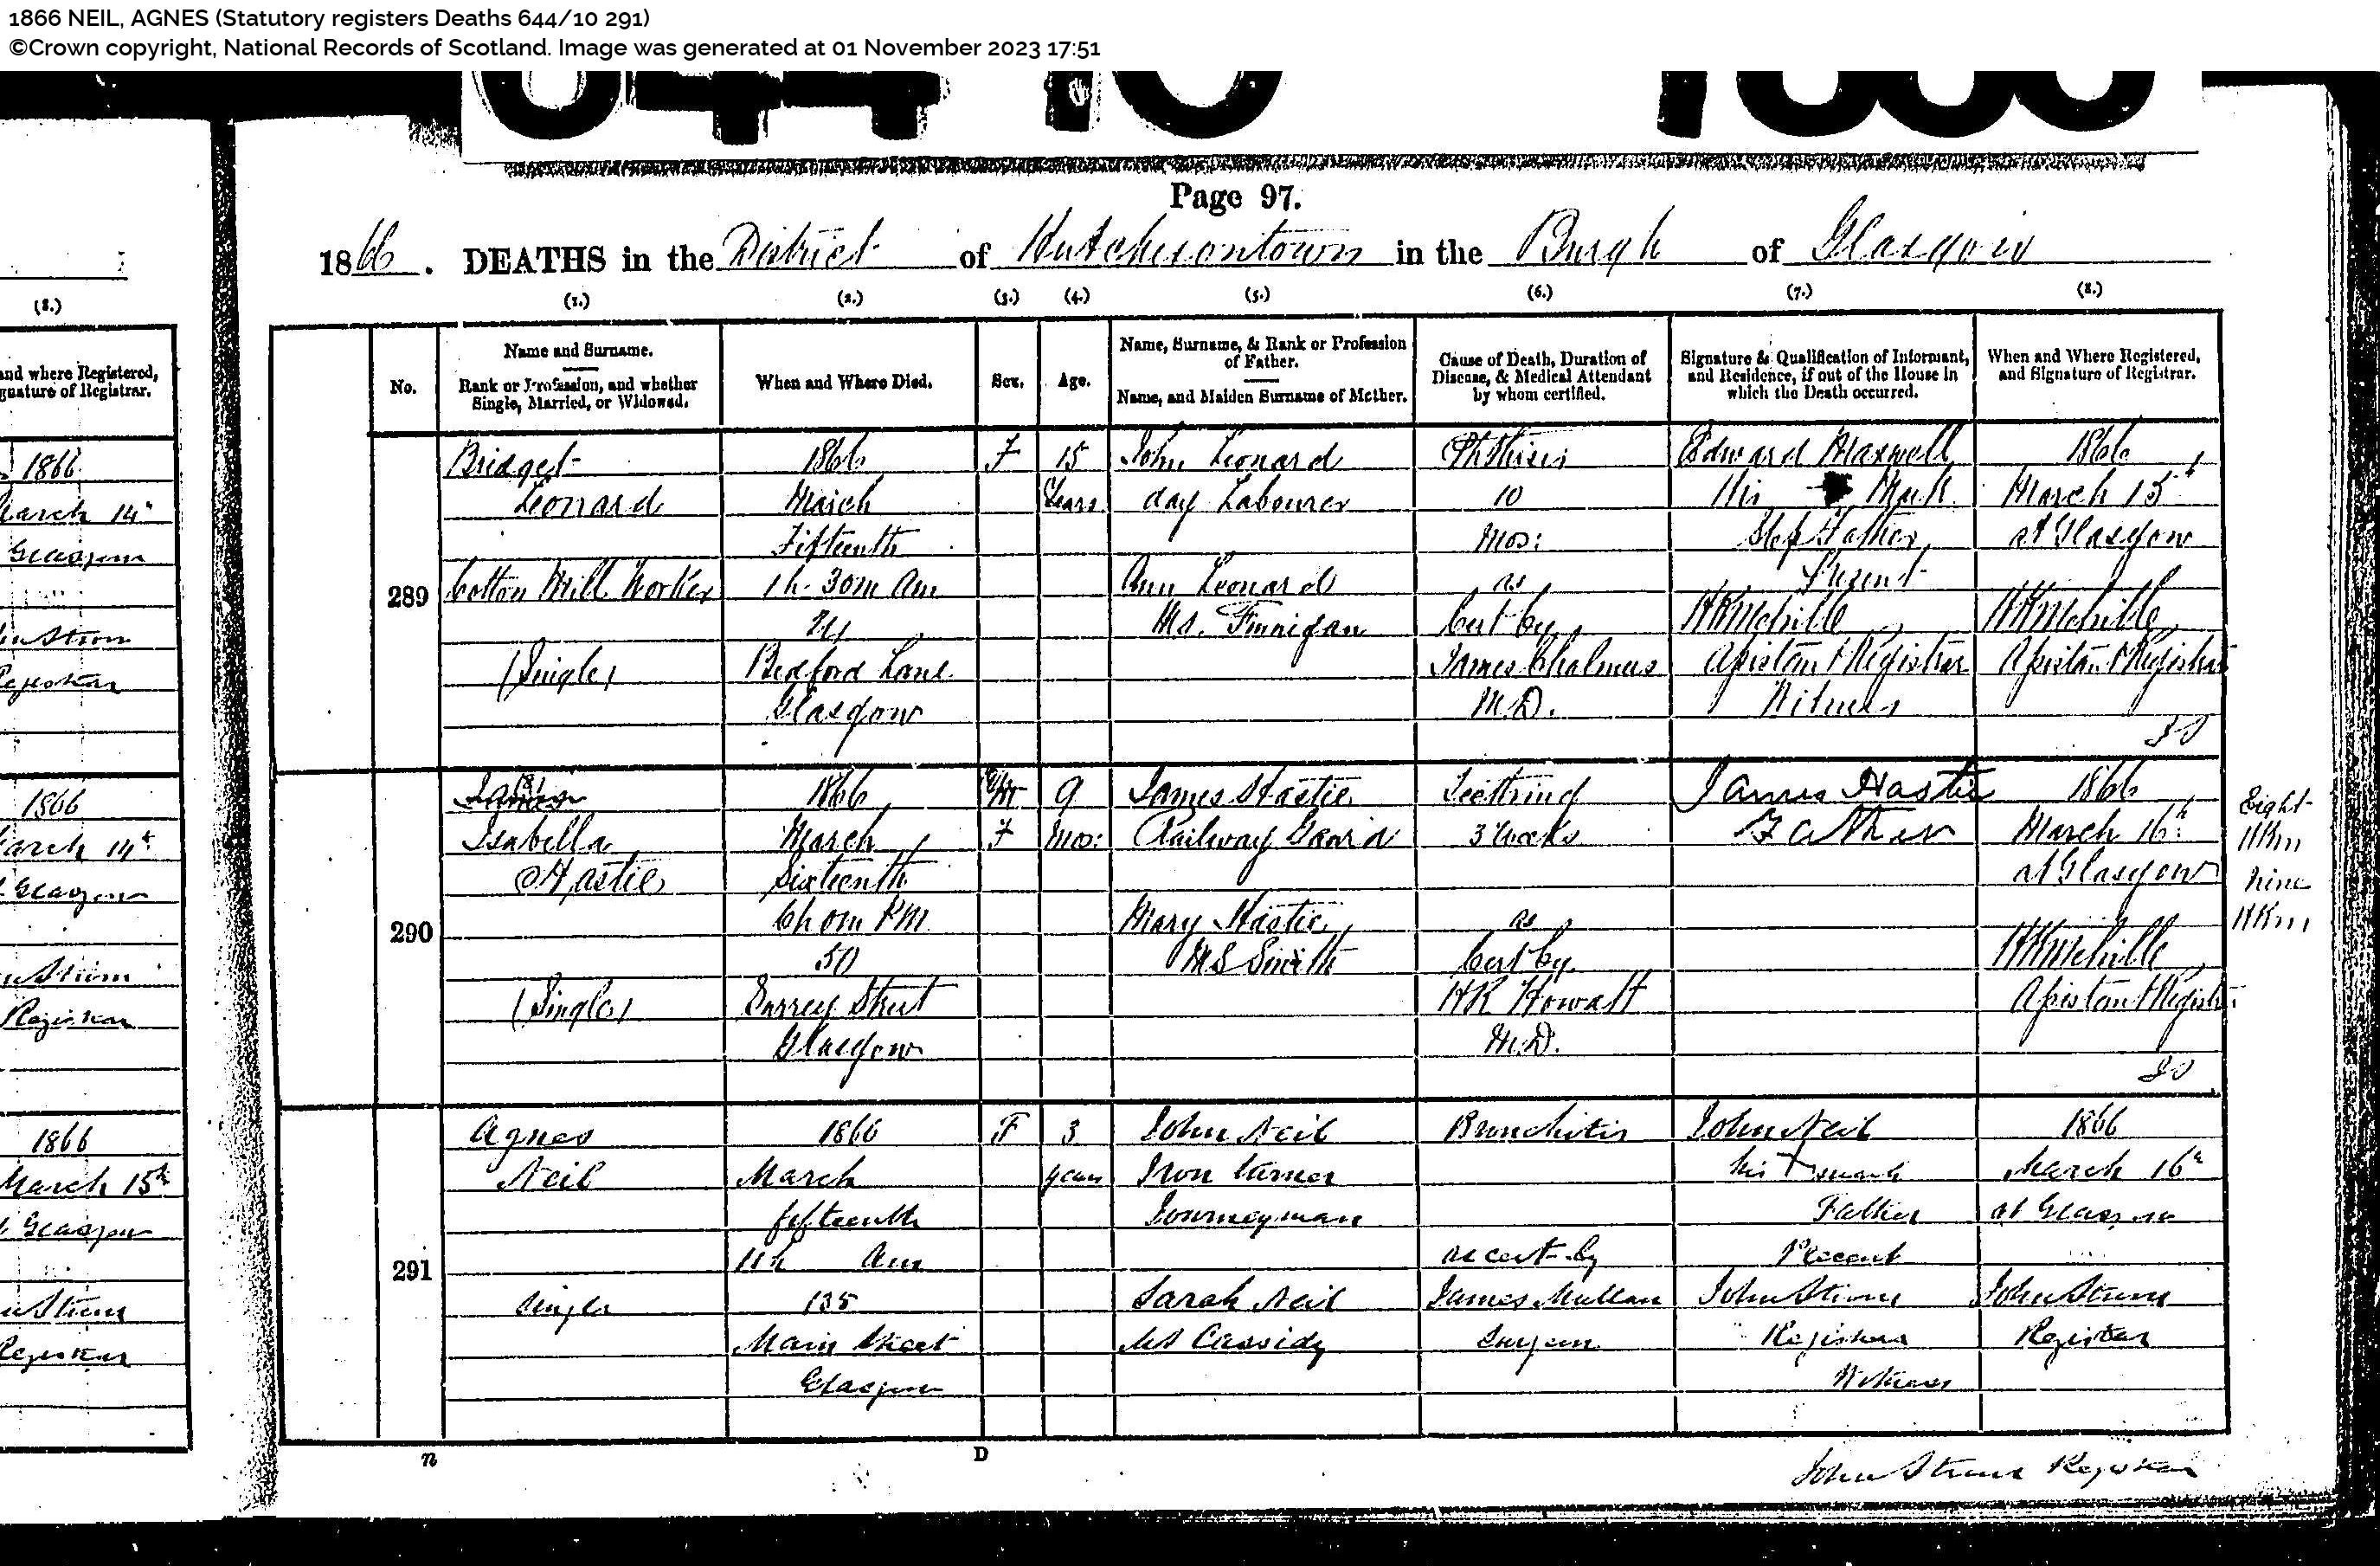 1866 NEIL, AGNES (Statutory registers Deaths 644/10 291)
©Crown copyright, National Records of Scotland. Image was generated at 01 November 2023 17:51
644 10 1866
Page 97.
1866. DEATHS in the District of Hutchesontown in the Burgh of Glasgow
(1.) (2.) (3.) (4.) (5.) (6.) (7.) (8.)
No.
Name and Surname.
Rank or Profession, and whether
Single, Married, or Widowed.
When and Where Died.
Sex.
Age.
Name, Surname, & Rank or Profession
of Father.
Name, and Maiden Surname of Mother.
Cause of Death, Duration of
Disease, & Medical Attendant
by whom certified.
Signature & Qualification of Informant,
and Residence, if out of the House in
which the Death occurred.
When and Where Registered,
and Signature of Registrar.
289
Bridget
Leonard
Cotton Mill Worker
(Single)
1866
March
Fifteenth
1h. 30m am
Bedford Lane
Glasgow
F
15
Years
John Leonard
day Labourer
Ann Leonard
Ms. Finnigan
Phthisis
10
Mos:
as
Cert by
James Chalmers
M.D.
Edward Maxwell
His Mark
Step Father
Present
HKMelville
Assistant Registrar
Witness
1866
March 15th
at Glasgow
HKMelville
Assistant Registrar
290
Isabella
Hastie
(Single)
1866
March
Sixteenth
6h 0m PM
50
Surrey Street
Glasgow
M
F
9
Mos:
James Hastie
Railway Guard
Mary Hastie
MS Smith
Teething
3 Weeks
as
Cert by
HR Howatt
M.D.
James Hastie
Father
1866
March 16th
at Glasgow
HKMelville
Assistant Registrar
Eight
HKm
Nine
HKm
291
Agnes
Neil
Single
1866
March
fifteenth
11h am
135
Main Street
Glasgow
F
3
years
John Neil
Iron turner
Journeyman
Sarah Neil
MS Cassidy
Bronchitis
as cert by
James Mullan
Surgeon
John Neil
his x mark
Father
Present
Registrar
Witness
1866
March 16th
at Glasgow
Registrar
n D
Registrar
(8.)
and where Registered,
gnature of Registrar.
1866
March 14th
Glasgow
Registrar
1866
March 14th
Glasgow
Registrar
1866
March 15th
Glasgow
Registrar